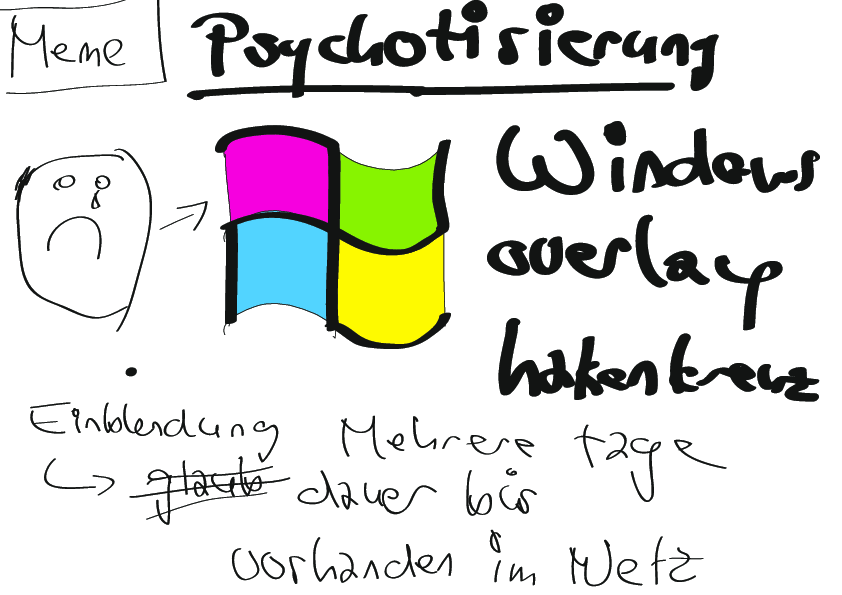 Meme
Psychotisierung
Windows
overlay
hakenkreuz
Einblendung Mehrere tage
glaub dauer bis
vorhanden im Netz